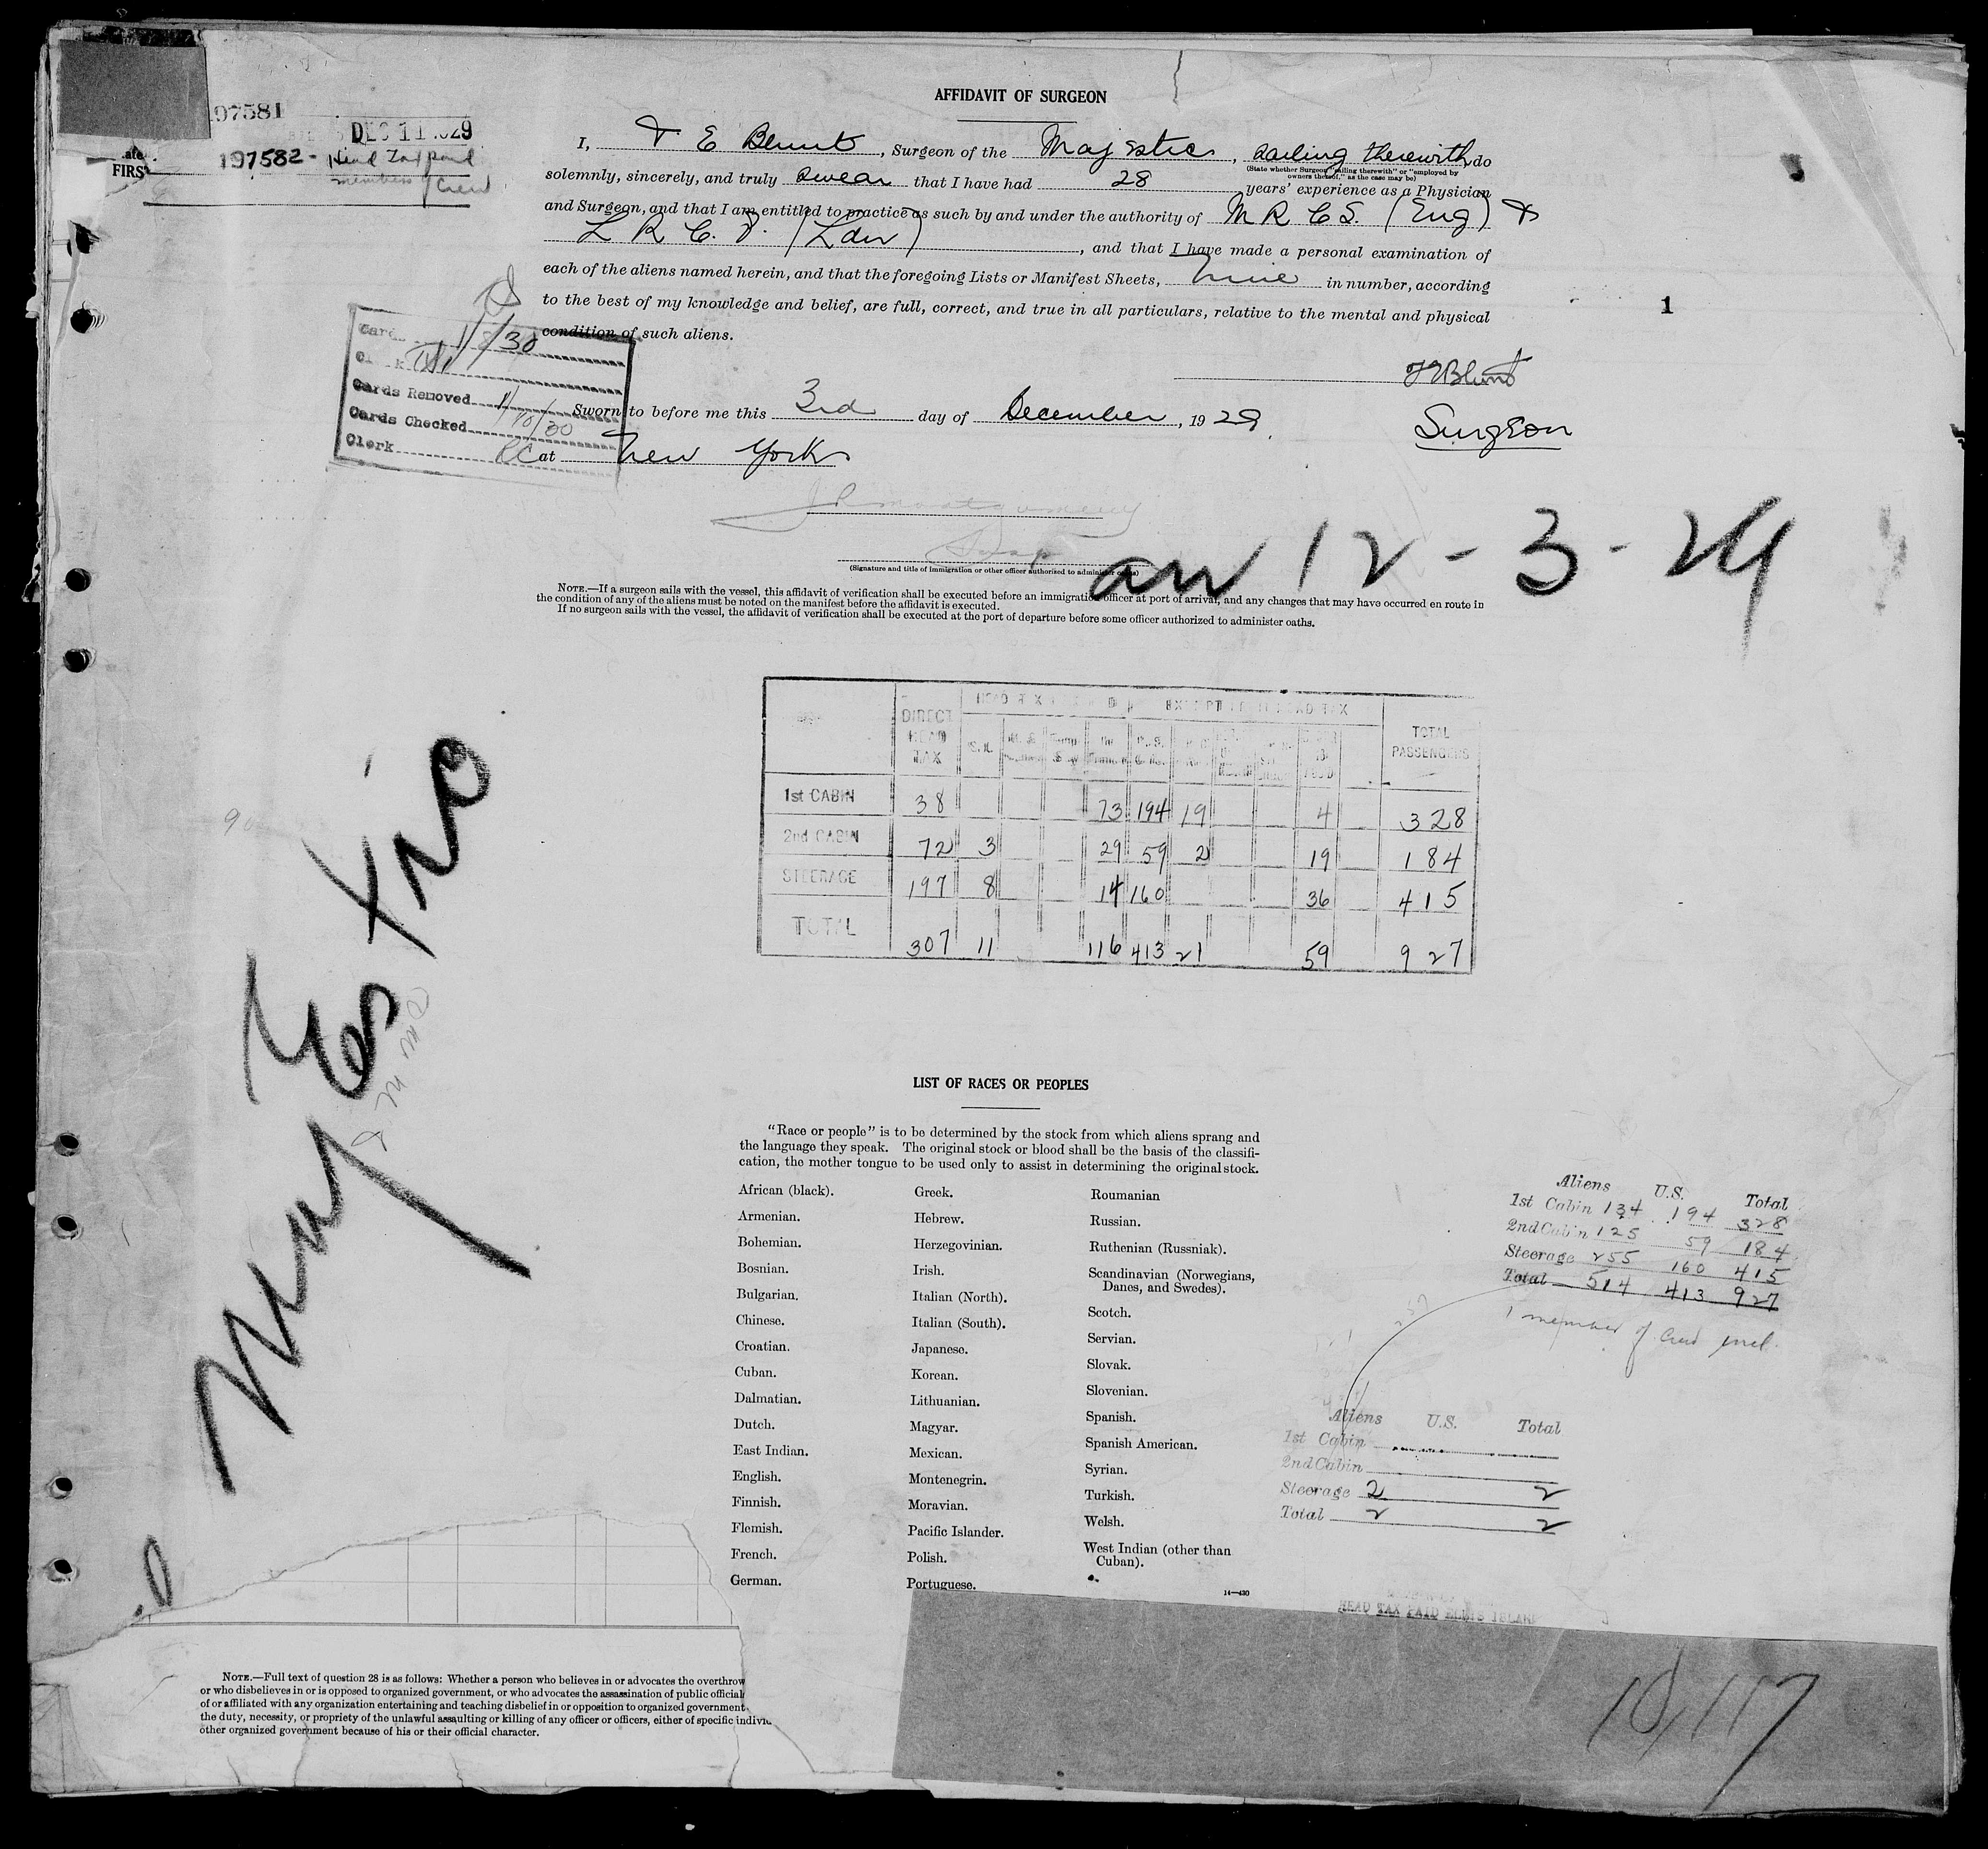 AFFIDAVIT OF SURGEON
97581
DEC 11 1929
197582 - Head Tax paid
members of Crew
FIRS
I, F. E. Blunt, Surgeon of the Majestic, sailing therewith, do
(State whether Surgeon "sailing therewith" or "employed by
owners thereof," as the case may be)
solemnly, sincerely, and truly swear that I have had 28 years' experience as a Physician
and Surgeon, and that I am entitled to practice as such by and under the authority of M R C S. (Eng) &
L R C. P. (Lon), and that I have made a personal examination of
each of the aliens named herein, and that the foregoing Lists or Manifest Sheets, nine in number, according
to the best of my knowledge and belief, are full, correct, and true in all particulars, relative to the mental and physical
condition of such aliens.
1
F E Blunt
Surgeon
Card 1/8/30
Clerk
Cards Removed
Cards Checked 1/10/30
Clerk RC
Sworn to before me this 3rd day of December, 1929.
at New York
J R Montgomery
Insp
(Signature and title of immigration or other officer authorized to administer oaths)
arr 12-3-29
NOTE.—If a surgeon sails with the vessel, this affidavit of verification shall be executed before an immigration officer at port of arrival, and any changes that may have occurred en route in
the condition of any of the aliens must be noted on the manifest before the affidavit is executed.
If no surgeon sails with the vessel, the affidavit of verification shall be executed at the port of departure before some officer authorized to administer oaths.
DIRECT HEAD TAX EXEMPT FROM HEAD TAX TOTAL PASSENGERS
1st CABIN 38 73 194 19 4 328
2nd CABIN 72 3 29 59 2 19 184
STEERAGE 197 8 14 160 36 415
TOTAL 307 11 116 413 21 59 927
Majestic
LIST OF RACES OR PEOPLES
"Race or people" is to be determined by the stock from which aliens sprang and
the language they speak. The original stock or blood shall be the basis of the classifi-
cation, the mother tongue to be used only to assist in determining the original stock.
African (black).
Armenian.
Bohemian.
Bosnian.
Bulgarian.
Chinese.
Croatian.
Cuban.
Dalmatian.
Dutch.
East Indian.
English.
Finnish.
Flemish.
French.
German.
Greek.
Hebrew.
Herzegovinian.
Irish.
Italian (North).
Italian (South).
Japanese.
Korean.
Lithuanian.
Magyar.
Mexican.
Montenegrin.
Moravian.
Pacific Islander.
Polish.
Portuguese.
Roumanian
Russian.
Ruthenian (Russniak).
Scandinavian (Norwegians,
Danes, and Swedes).
Scotch.
Servian.
Slovak.
Slovenian.
Spanish.
Spanish American.
Syrian.
Turkish.
Welsh.
West Indian (other than
Cuban).
14—430
Aliens U.S. Total
1st Cabin 134 194 328
2nd Cabin 125 59 184
Steerage 255 160 415
Total 514 413 927
1 member of Crew incl.
Aliens U.S. Total
1st Cabin
2nd Cabin
Steerage 2 2
Total 2 2
HEAD TAX PAID ELLIS ISLAND
10,117
NOTE.—Full text of question 28 is as follows: Whether a person who believes in or advocates the overthrow
or who disbelieves in or is opposed to organized government, or who advocates the assassination of public official
of or affiliated with any organization entertaining and teaching disbelief in or opposition to organized government
the duty, necessity, or propriety of the unlawful assaulting or killing of any officer or officers, either of specific individu
other organized government because of his or their official character.